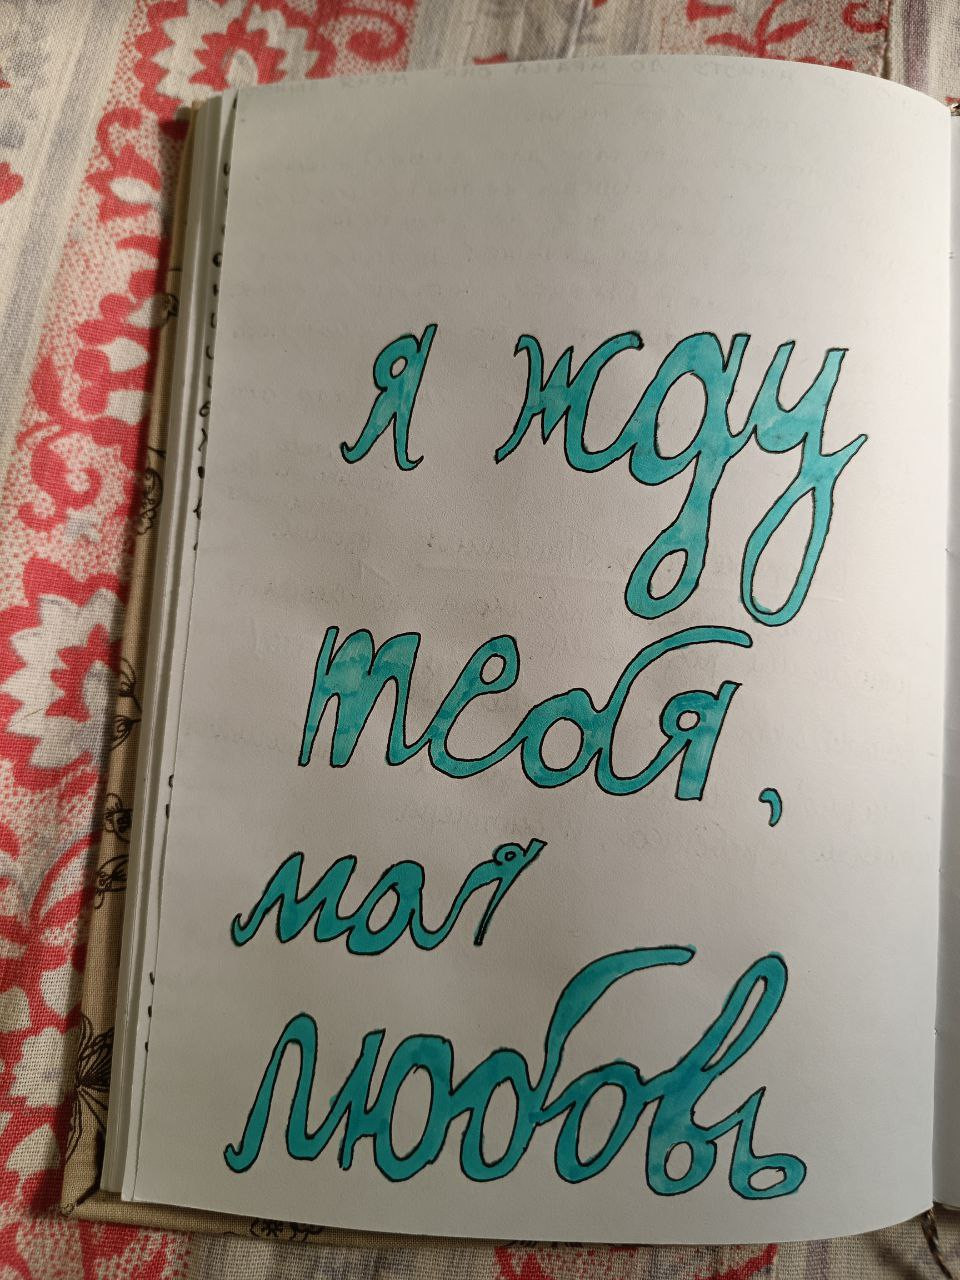 я жду
тебя,
моя
любовь